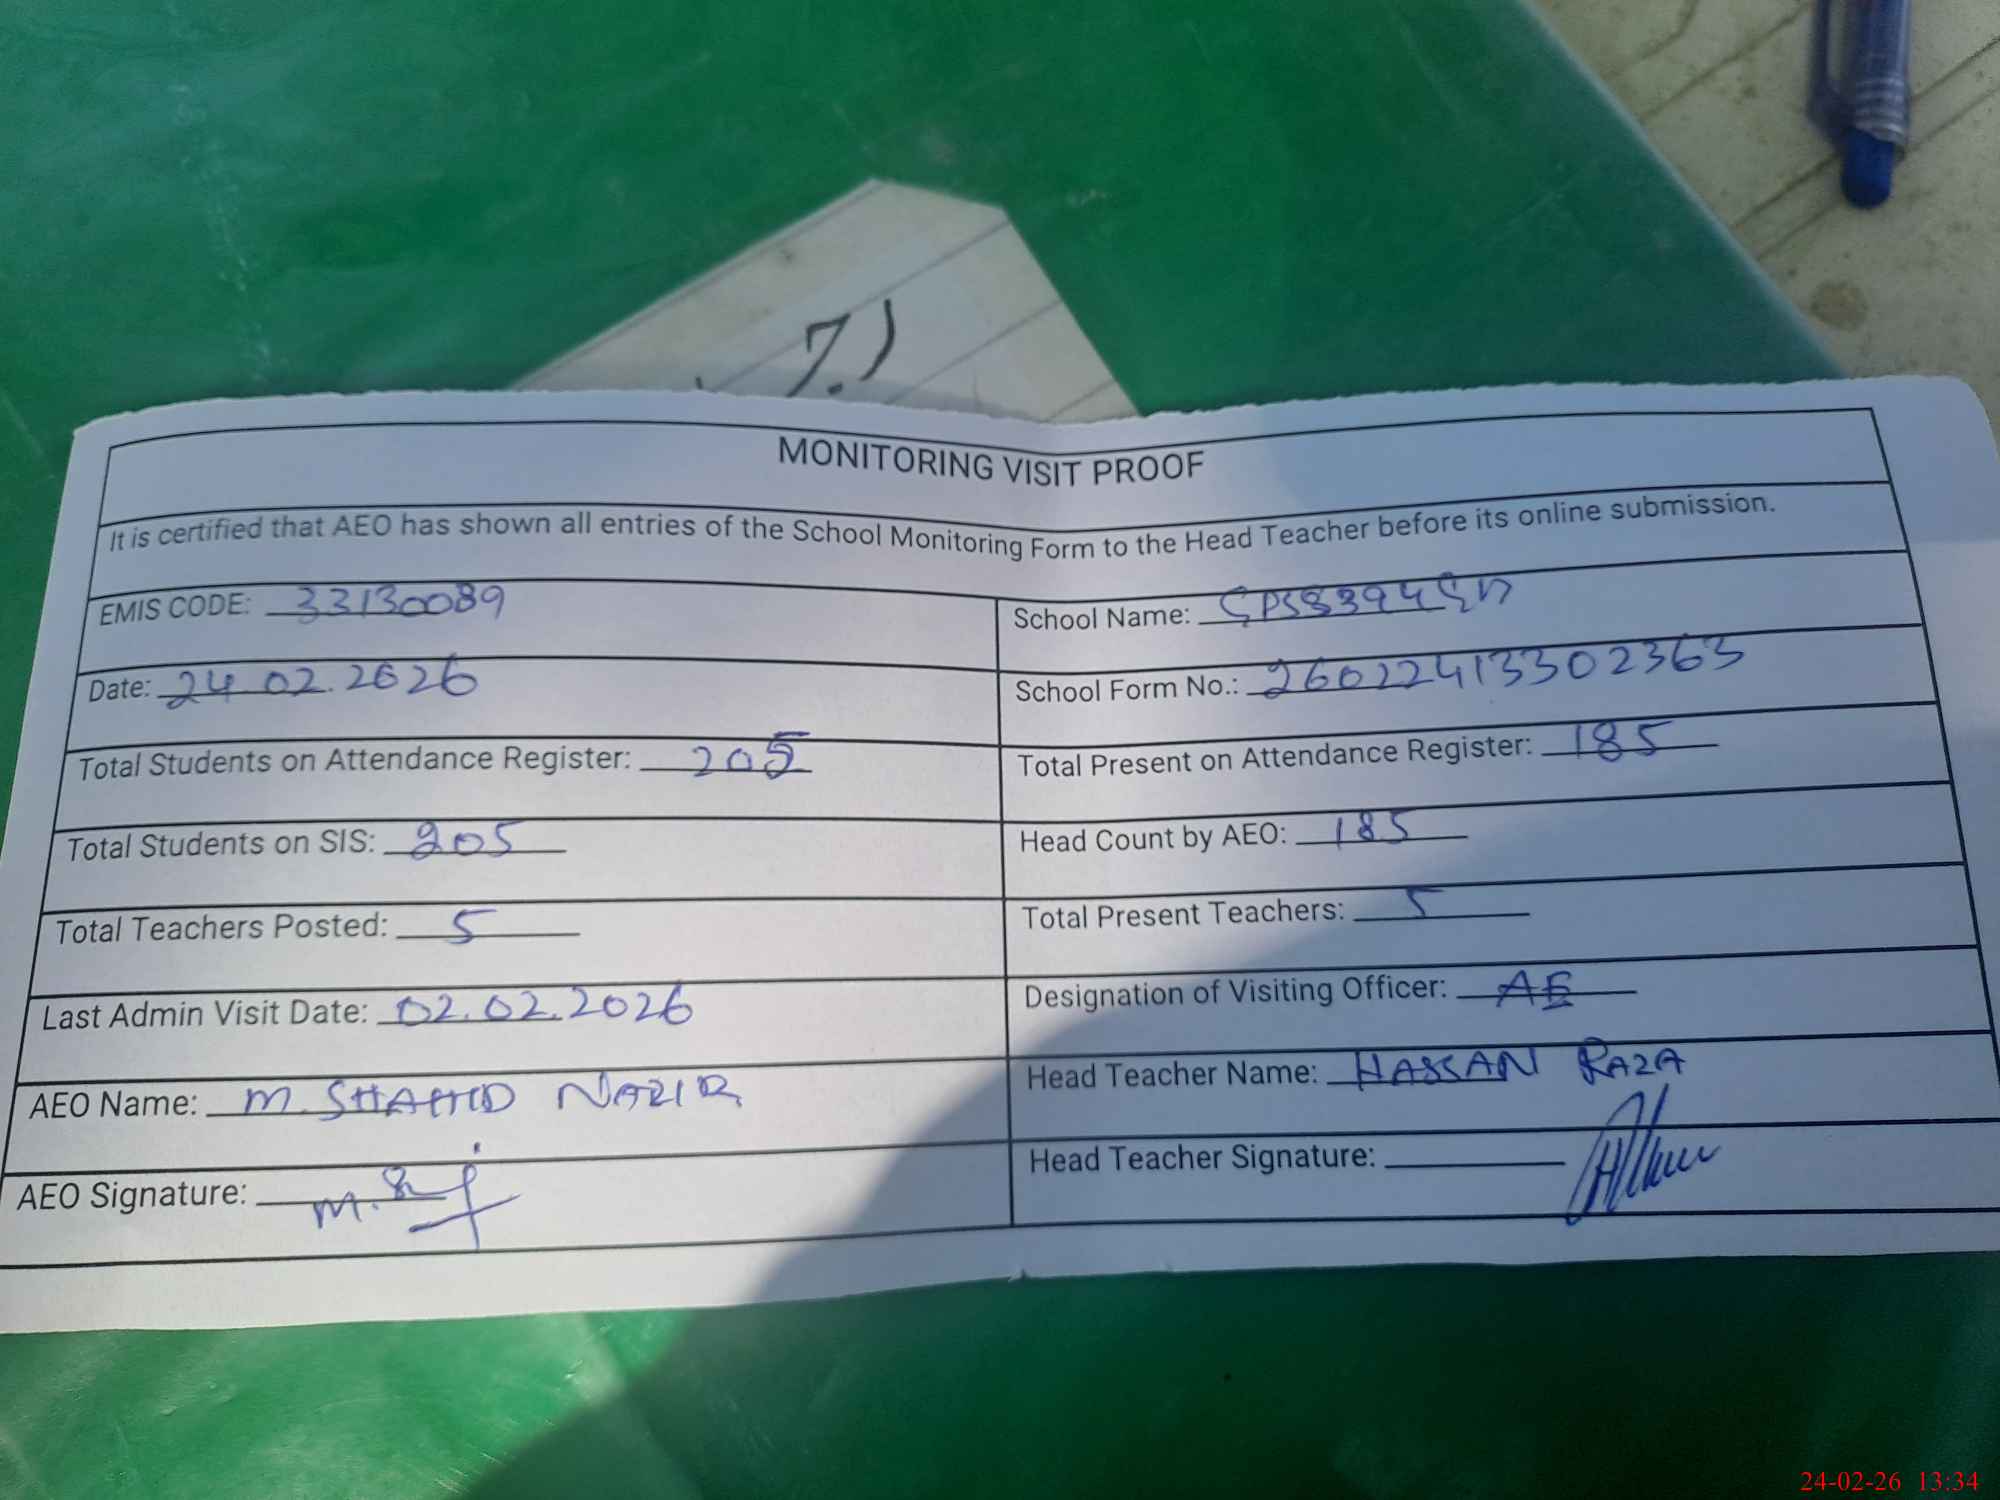 7.)
MONITORING VISIT PROOF
It is certified that AEO has shown all entries of the School Monitoring Form to the Head Teacher before its online submission.
EMIS CODE: 33130089
School Name:
Date: 24.02.2026
School Form No.: 26022413302363
Total Students on Attendance Register: 205
Total Present on Attendance Register: 185
Total Students on SIS: 205
Head Count by AEO: 185
Total Teachers Posted: 5
Total Present Teachers: 5
Last Admin Visit Date: 02.02.2026
Designation of Visiting Officer: AE
AEO Name: M. SHAHID NAZIR
Head Teacher Name: HASSAN RAZA
AEO Signature:
Head Teacher Signature:
24-02-26 13:34